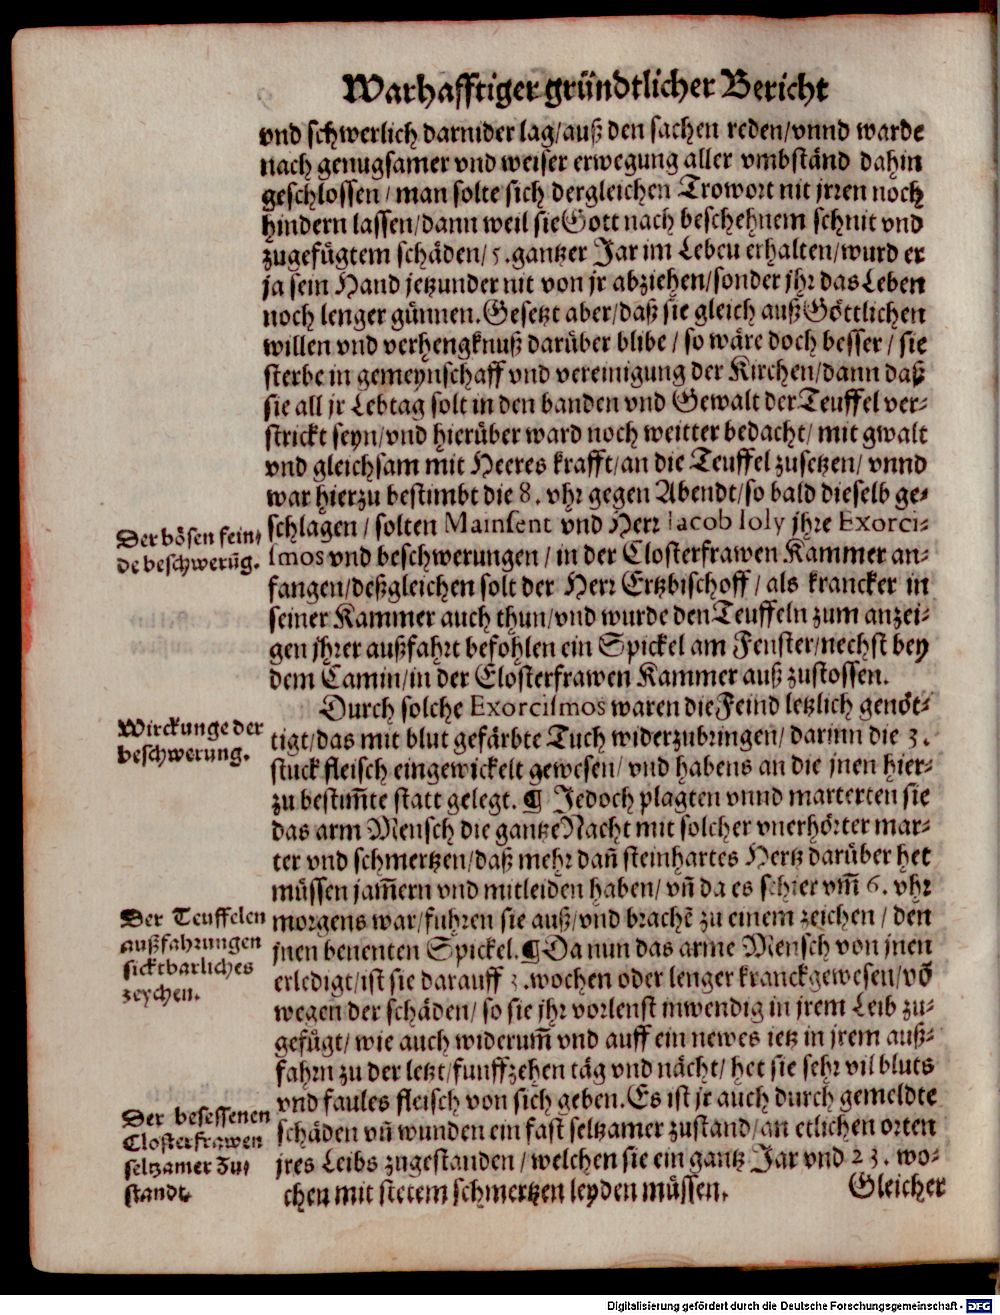 Warhafftiger gründtlicher Bericht
vnd schwerlich darnider lag/auß den sachen reden/vnnd warde
nach genugsamer vnd weiser erwegung aller vmbständ dahin
geschlossen/man solte sich dergleichen Trowort nit jrren noch
hindern lassen/dann weil sie Gott nach beschehnem schnit vnd
zugefügtem schäden/5.gantzer Jar im Lebeu erhalten/wurd er
ja sein Hand jetzunder nit von jr abziehen/sonder jhr das Leben
noch lenger günnen. Gesetzt aber/daß sie gleich auß Göttlichen
willen vnd verhengknuß darüber blibe/so wäre doch besser/sie
sterbe in gemeynschaff vnd vereinigung der Kirchen/dann daß
sie all jr Lebtag solt in den banden vnd Gewalt der Teuffel ver-
strickt seyn/vnd hierüber ward noch weitter bedacht/mit gwalt
vnd gleichsam mit Heeres krafft/an die Teuffel zusetzen/vnnd
war hierzu bestimbt die 8. vhr gegen Abendt/so bald dieselb ge-
Der bösen fein-
de beschwerūg.
schlagen/solten Mainsent vnd Herr Iacob Ioly jhre Exorci-
smos vnd beschwerungen/in der Closterfrawen Kammer an-
fangen/deßgleichen solt der Herr Ertzbischoff/als krancker in
seiner Kammer auch thun/vnd wurde den Teuffeln zum anzei-
gen jhrer außfahrt befohlen ein Spickel am Fenster/nechst bey
dem Camin/in der Closterfrawen Kammer auß zustossen.
Wirckunge der
beschwerung.
Durch solche Exorcismos waren die Feind letzlich genöt-
tigt/das mit blut gefärbte Tuch widerzubringen/darinn die 3.
stuck fleisch eingewickelt gewesen/vnd habens an die jnen hier-
zu bestim̄te statt gelegt. ¶ Jedoch plagten vnnd marterten sie
das arm Mensch die gantze Nacht mit solcher vnerhörter mar-
ter vnd schmertzen/daß mehr dañ steinhartes Hertz darüber het
müssen jam̄ern vnd mitleiden haben/vñ da es schier vm̄ 6. vhr
Der Teuffelen
außfahrungen
sicktbarliches
zeychen.
morgens war/fuhren sie auß/vnd brachē zu einem zeichen/den
jnen benenten Spickel.¶Da nun das arme Mensch von jnen
erledigt/ist sie darauff 3.wochen oder lenger kranck gewesen/vō
wegen der schäden/so sie jhr vorlenst inwendig in jrem Leib zu-
gefügt/wie auch widerum̄ vnd auff ein newes ietz in jrem auß-
fahrn zu der letzt/funffzehen täg vnd nächt/het sie sehr vil bluts
vnd faules fleisch von sich geben. Es ist jr auch durch gemeldte
Der besessenen
Closterfrawen
seltzamer Zu-
standt.
schäden vñ wunden ein fast seltzamer zustand/an etlichen orten
jres Leibs zugestanden/welchen sie ein gantz Jar vnd 23. wo-
chen mit stetem schmertzen leyden müssen.
Gleicher
Digitalisierung gefördert durch die Deutsche Forschungsgemeinschaft - DFG